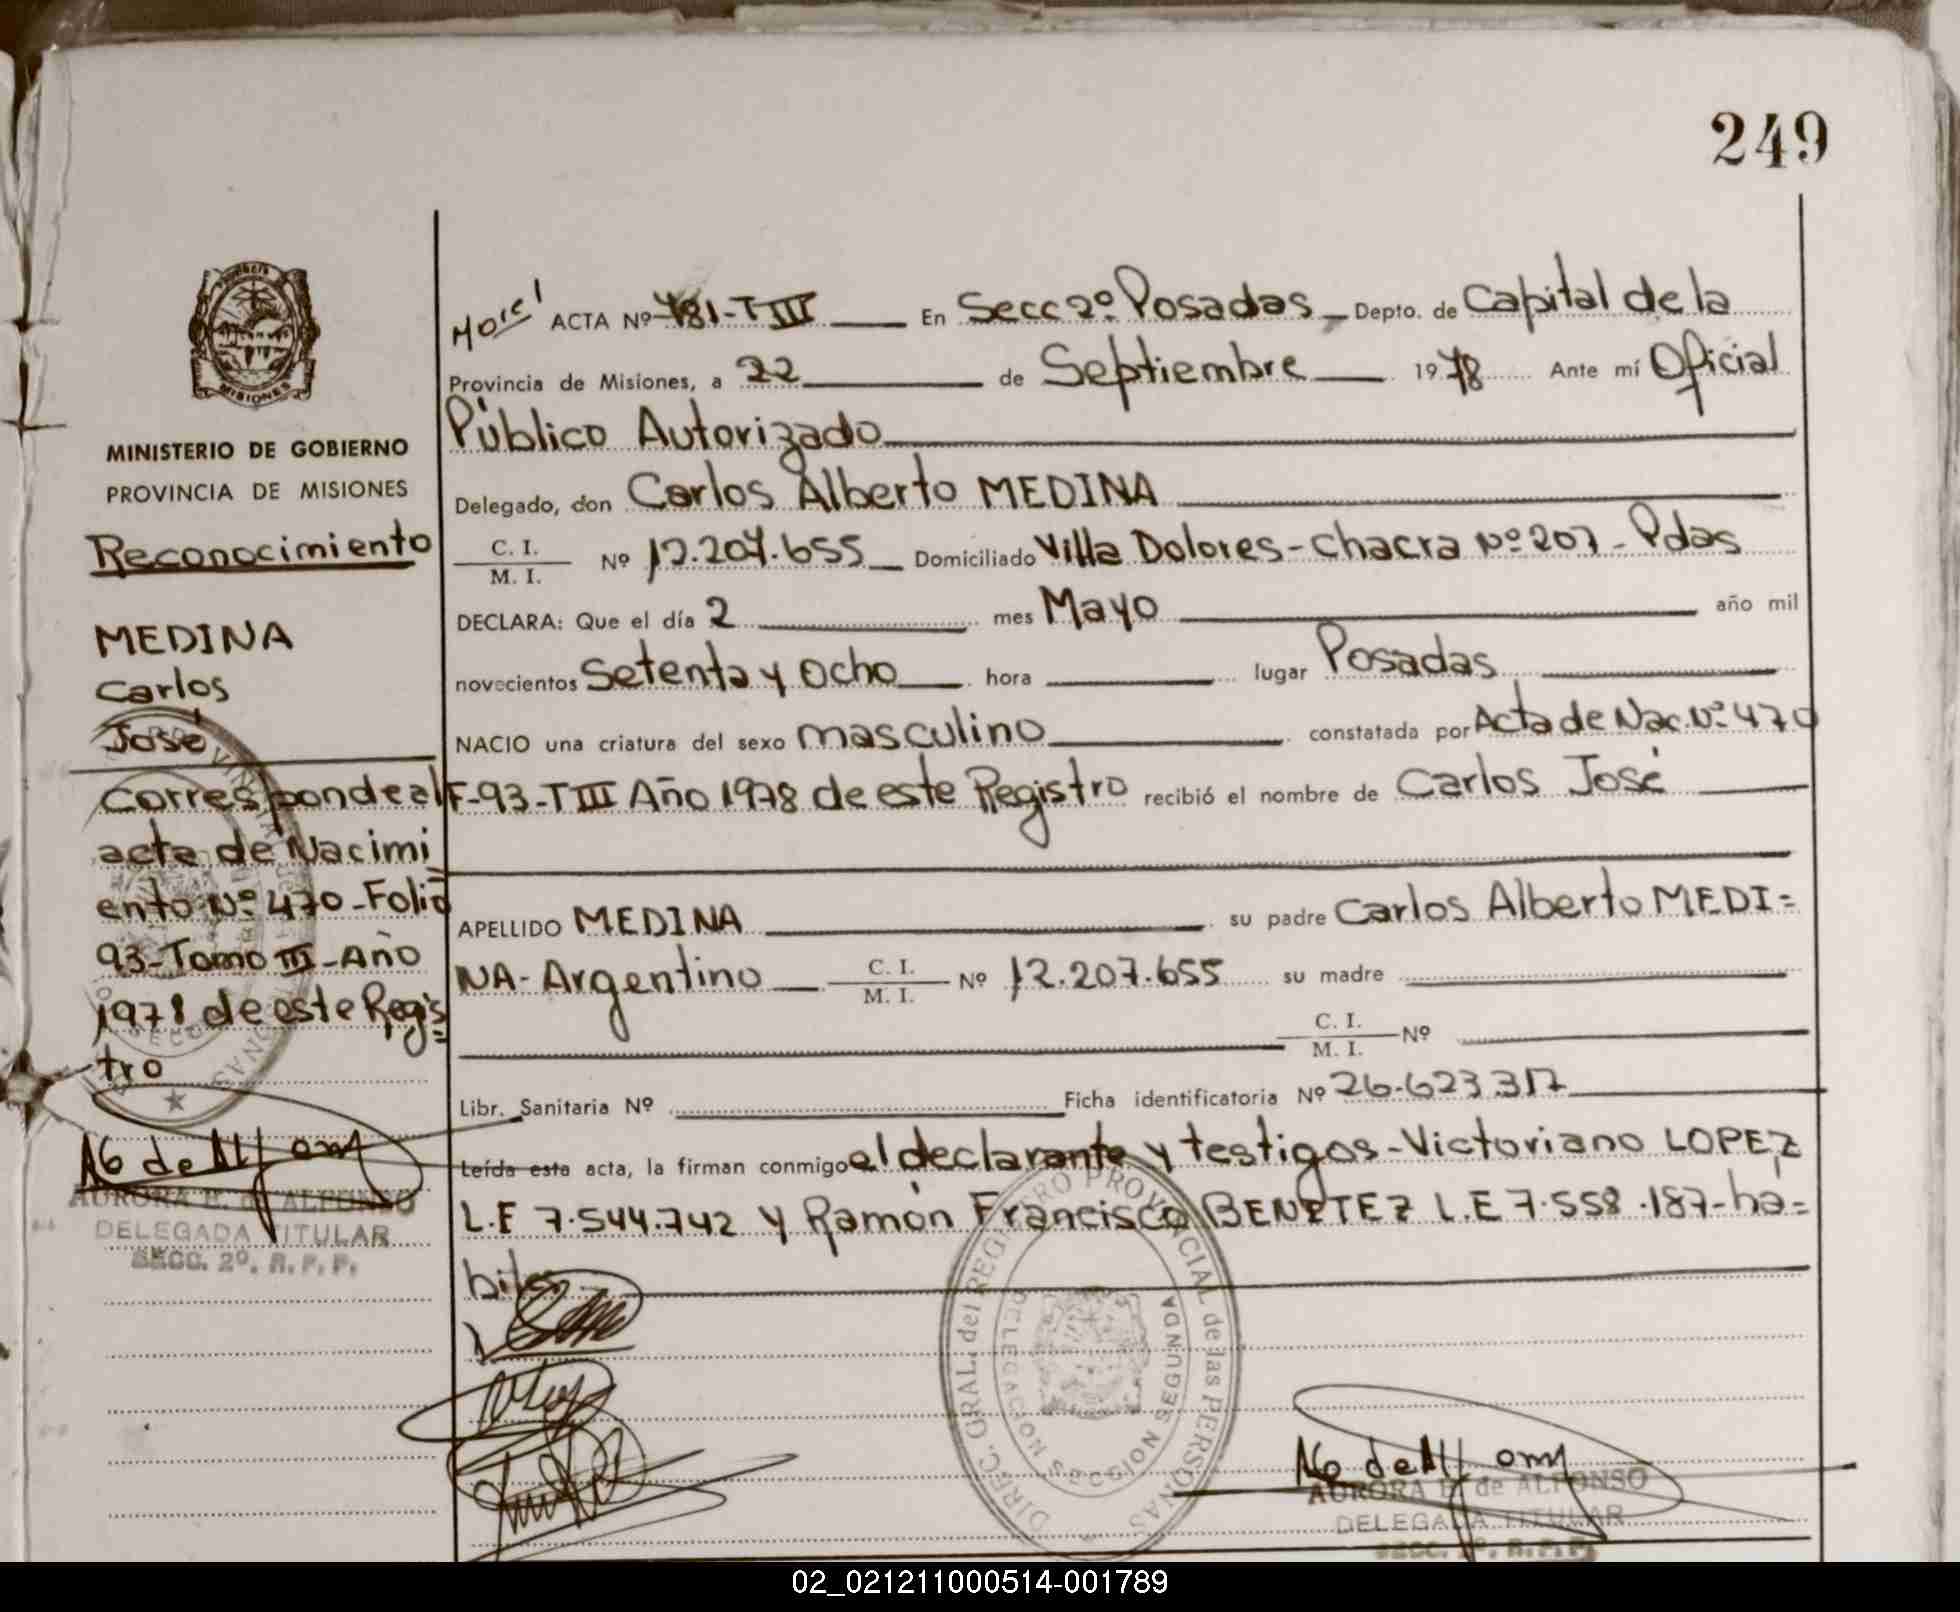 249
MISIONES
MINISTERIO DE GOBIERNO
PROVINCIA DE MISIONES
Reconocimiento
MEDINA
Carlos
José
Corresponde al
acta de Nacimi
ento Nº 470-Folio
93-Tomo III-Año
1978 de este Regis=
tro
AURORA E. de ALFONSO
DELEGADA TITULAR
SECC. 2º. R. P. P.
ACTA Nº 481-TIII En Secc 2º Posadas Depto. de Capital de la
Provincia de Misiones, a 22 de Septiembre 1978 Ante mí Oficial
Público Autorizado
Delegado, don Carlos Alberto MEDINA
C. I.
M. I. Nº 12.207.655 Domiciliado Villa Dolores-Chacra Nº 207-Pdas
DECLARA: Que el día 2 mes Mayo año mil
novecientos Setenta y Ocho hora lugar Posadas
NACIO una criatura del sexo masculino constatada por Acta de Nac. Nº 470
F-93-TIII Año 1978 de este Registro recibió el nombre de Carlos José
APELLIDO MEDINA su padre Carlos Alberto MEDI=
NA-Argentino C. I.
M. I. Nº 12.207.655 su madre
C. I.
M. I. Nº
Libr. Sanitaria Nº Ficha identificatoria Nº 26.623.317
Leída esta acta, la firman conmigo el declarante y testigos-Victoriano LOPEZ
L.E 7.544.742 y Ramón Francisco BENITEZ L.E 7.558.187-há=
biles
DIREC. GRAL. del REGISTRO PROVINCIAL de las PERSONAS
DELEGACION SECCION SEGUNDA
AURORA E. de ALFONSO
DELEGADA TITULAR
SECC. 2º. R. P. P.
02_021211000514-001789